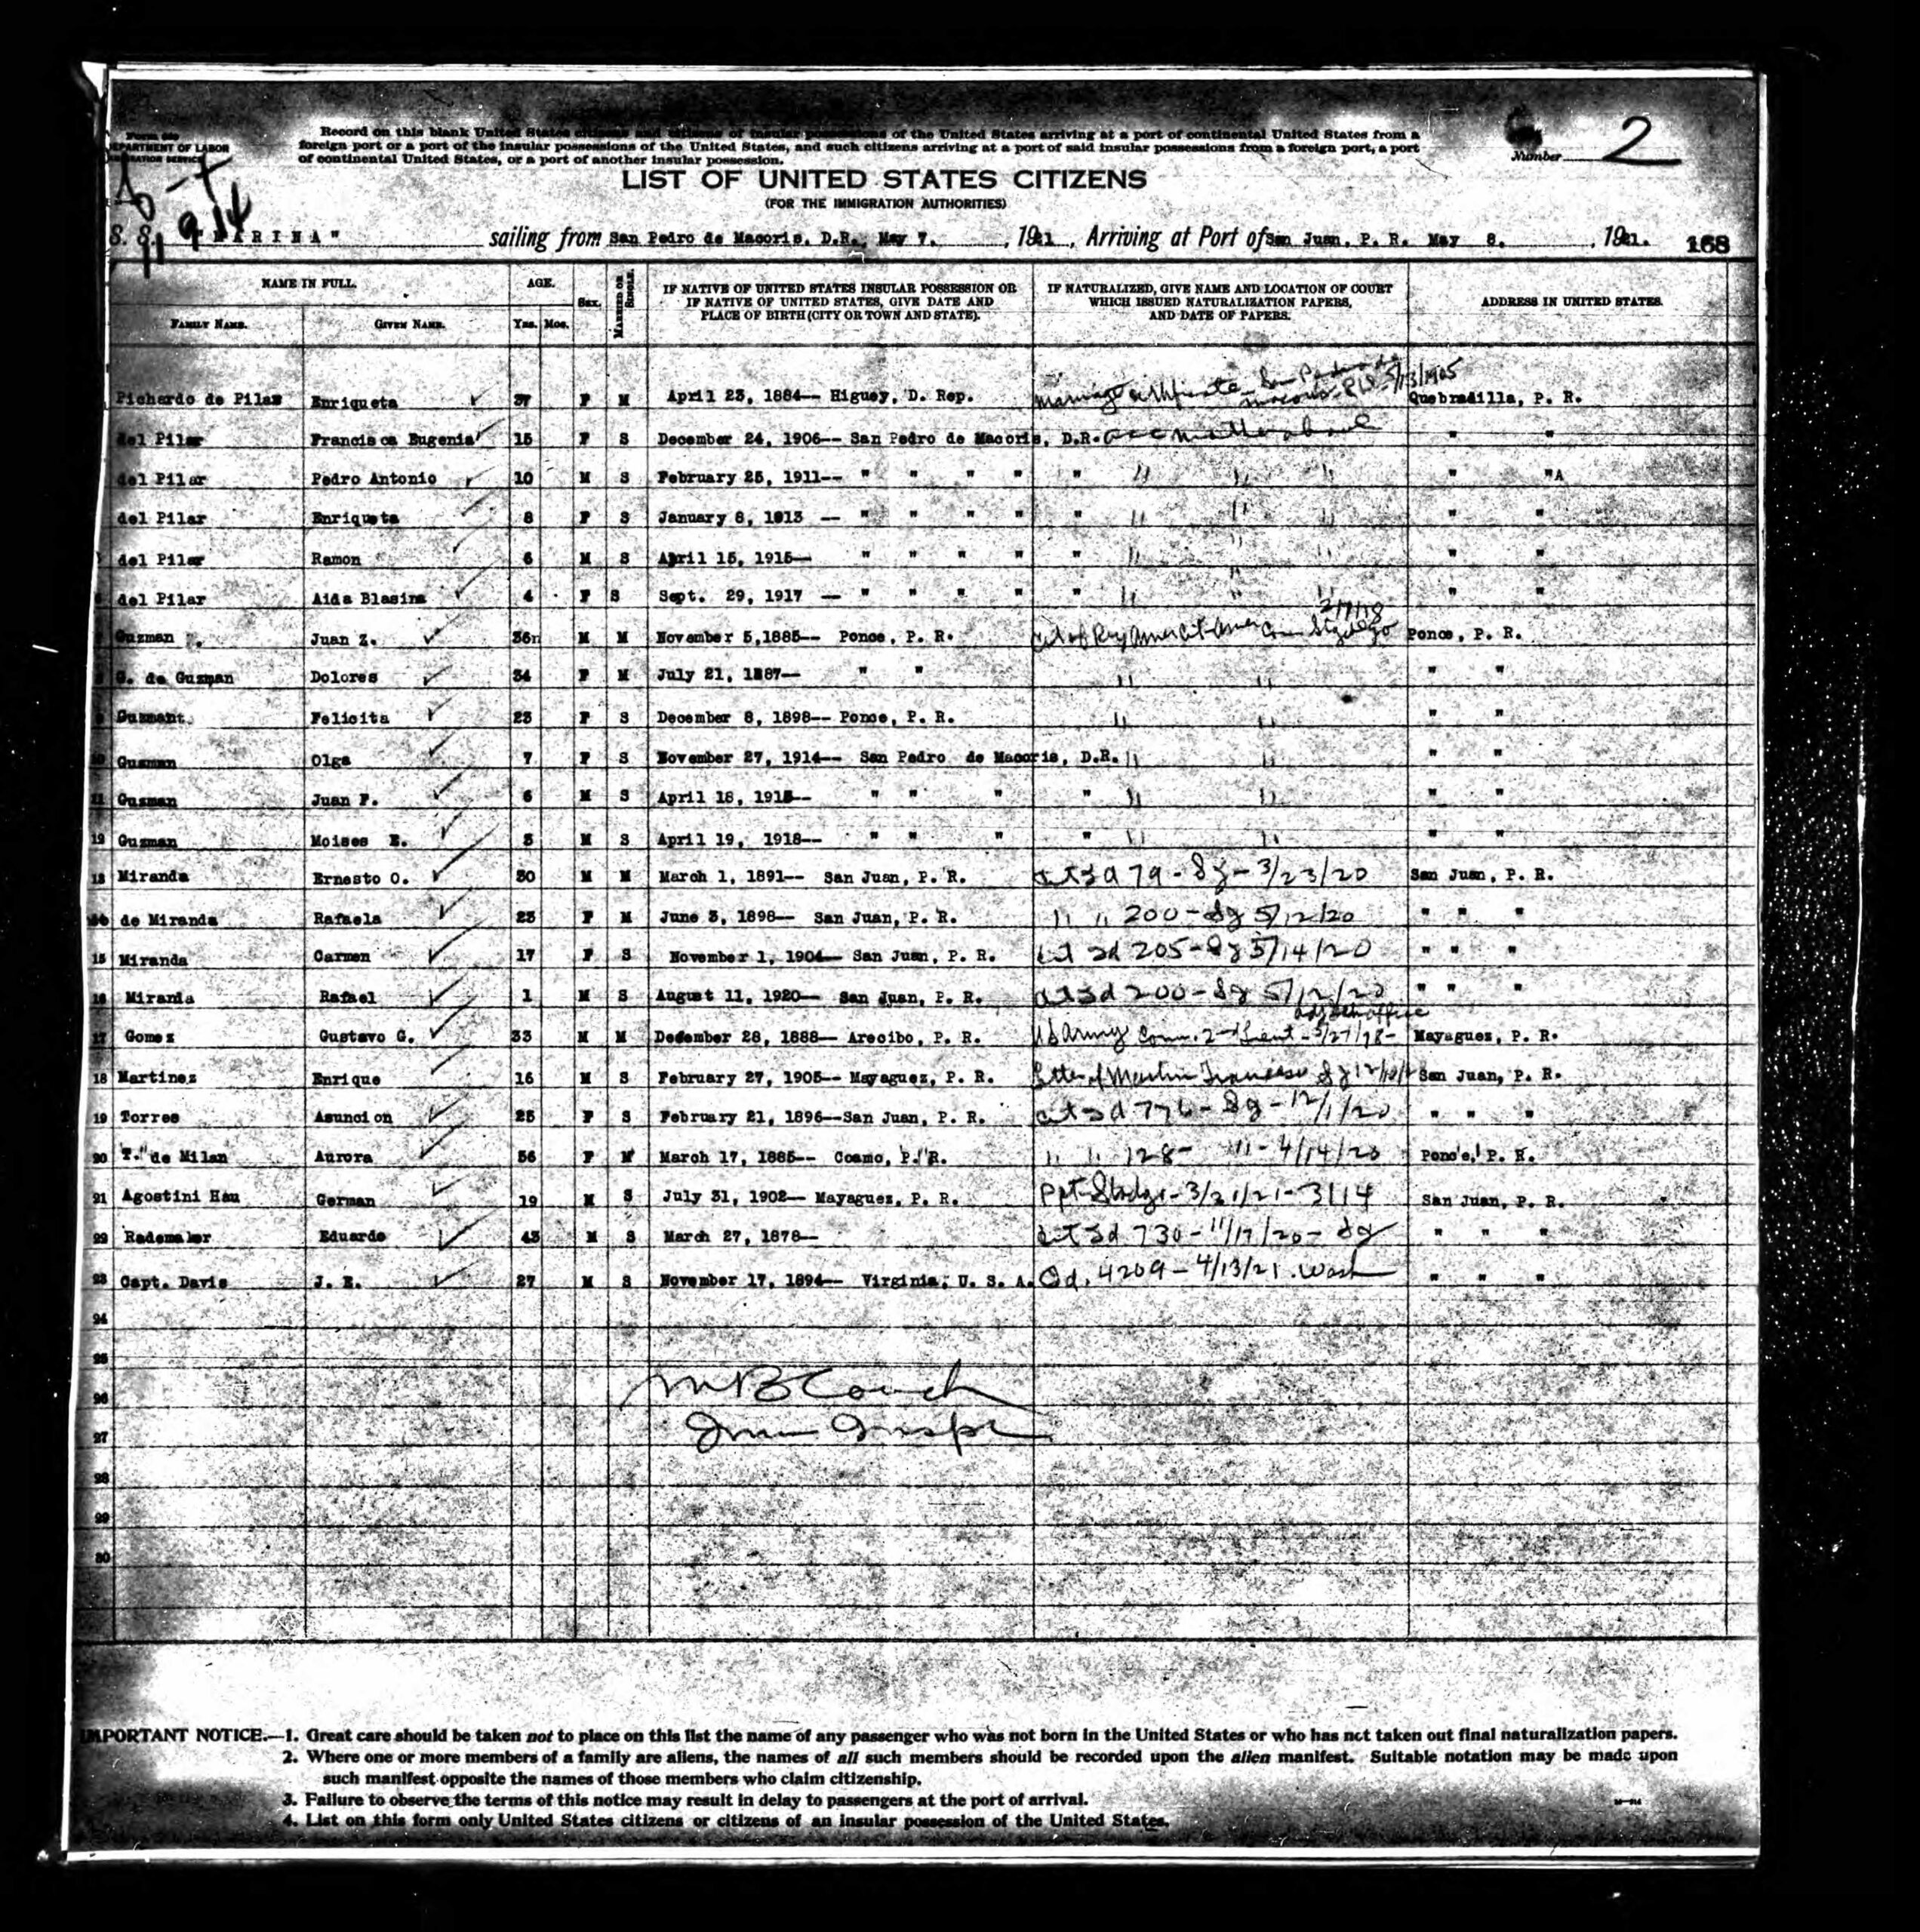 Form 630
DEPARTMENT OF LABOR
IMMIGRATION SERVICE
Record on this blank United States citizens and citizens of insular possessions of the United States arriving at a port of continental United States from a
foreign port or a port of the insular possessions of the United States, and such citizens arriving at a port of said insular possessions from a foreign port, a port
of continental United States, or a port of another insular possession.
Number 2
LIST OF UNITED STATES CITIZENS
(FOR THE IMMIGRATION AUTHORITIES)
S. S. "MARINA" sailing from San Pedro de Macoris. D.R., May 7. , 1921 , Arriving at Port of San Juan, P. R. May 8. , 1921. 168
NAME IN FULL. AGE. Sex. MARRIED OR SINGLE. IF NATIVE OF UNITED STATES INSULAR POSSESSION OR IF NATIVE OF UNITED STATES, GIVE DATE AND PLACE OF BIRTH (CITY OR TOWN AND STATE). IF NATURALIZED, GIVE NAME AND LOCATION OF COURT WHICH ISSUED NATURALIZATION PAPERS, AND DATE OF PAPERS. ADDRESS IN UNITED STATES.
FAMILY NAME. GIVEN NAME. Yrs. Mos.
Pichardo de Pilar Enriqueta 37 F M April 23, 1884-- Higuey, D. Rep. Marriage certificate San Pedro de Macoris 5/13/1905 Quebradilla, P. R.
del Pilar Francisca Eugenia 15 F S December 24, 1906-- San Pedro de Macoris, D.R. acc mother above " "
del Pilar Pedro Antonio 10 M S February 25, 1911-- " " " " " " " " " "A
del Pilar Enriqueta 8 F S January 8, 1913 -- " " " " " " " " " "
del Pilar Ramon 6 M S April 15, 1915-- " " " " " " " " " "
del Pilar Aida Blasina 4 F S Sept. 29, 1917 -- " " " " " " " " " "
Guzman Juan Z. 36 M M November 5,1885-- Ponce, P. R. 2/7/18 Ponce, P. R.
8 G. de Guzman Dolores 34 F M July 21, 1887-- " " " " " "
9 Guzman Felicita 23 F S December 8, 1898-- Ponce, P. R. " " " "
10 Guzman Olga 7 F S November 27, 1914-- San Pedro de Macoris, D.R. " " " "
11 Guzman Juan F. 6 M S April 18, 1915-- " " " " " " " "
12 Guzman Moises E. 3 M S April 19, 1918-- " " " " " " " "
13 Miranda Ernesto O. 30 M M March 1, 1891-- San Juan, P. R. 79 - Sg - 3/23/20 San Juan, P. R.
14 de Miranda Rafaela 23 F M June 3, 1898-- San Juan, P. R. " " 200 - Sg 5/12/20 " " "
15 Miranda Carmen 17 F S November 1, 1904-- San Juan, P. R. 205 - Sg 5/14/20 " " "
16 Miranda Rafael 1 M S August 11, 1920-- San Juan, P. R. 200 - Sg 5/12/20 " " "
17 Gomez Gustavo G. 33 M M December 28, 1888-- Arecibo, P. R. US Army Comm. 2nd Lieut - 5/27/18 - Mayaguez, P. R.
18 Martinez Enrique 16 M S February 27, 1905-- Mayaguez, P. R. Letter of Martin San Juan, P. R.
19 Torres Asuncion 25 F S February 21, 1896--San Juan, P. R. 776 - Sg - 12/1/20 " " "
20 T. de Milan Aurora 36 F M March 17, 1885-- Coamo, P. R. " " 128 - " - 4/14/20 Ponce, P. R.
21 Agostini Hau German 19 M S July 31, 1902-- Mayaguez, P. R. Ppt 3/21/21 - 3114 San Juan, P. R.
22 Rademaker Eduardo 43 M S March 27, 1878-- 730 - 11/17/20 - Sg " " "
23 Capt. Davis J. E. 27 M S November 17, 1894-- Virginia, U. S. A. Od. 4209 - 4/13/21. Wash " " "
24
25
26
27
28
29
30
M B Couch
Imm Inspr
IMPORTANT NOTICE.—1. Great care should be taken not to place on this list the name of any passenger who was not born in the United States or who has not taken out final naturalization papers.
2. Where one or more members of a family are aliens, the names of all such members should be recorded upon the alien manifest. Suitable notation may be made upon
such manifest opposite the names of those members who claim citizenship.
3. Failure to observe the terms of this notice may result in delay to passengers at the port of arrival.
4. List on this form only United States citizens or citizens of an insular possession of the United States.